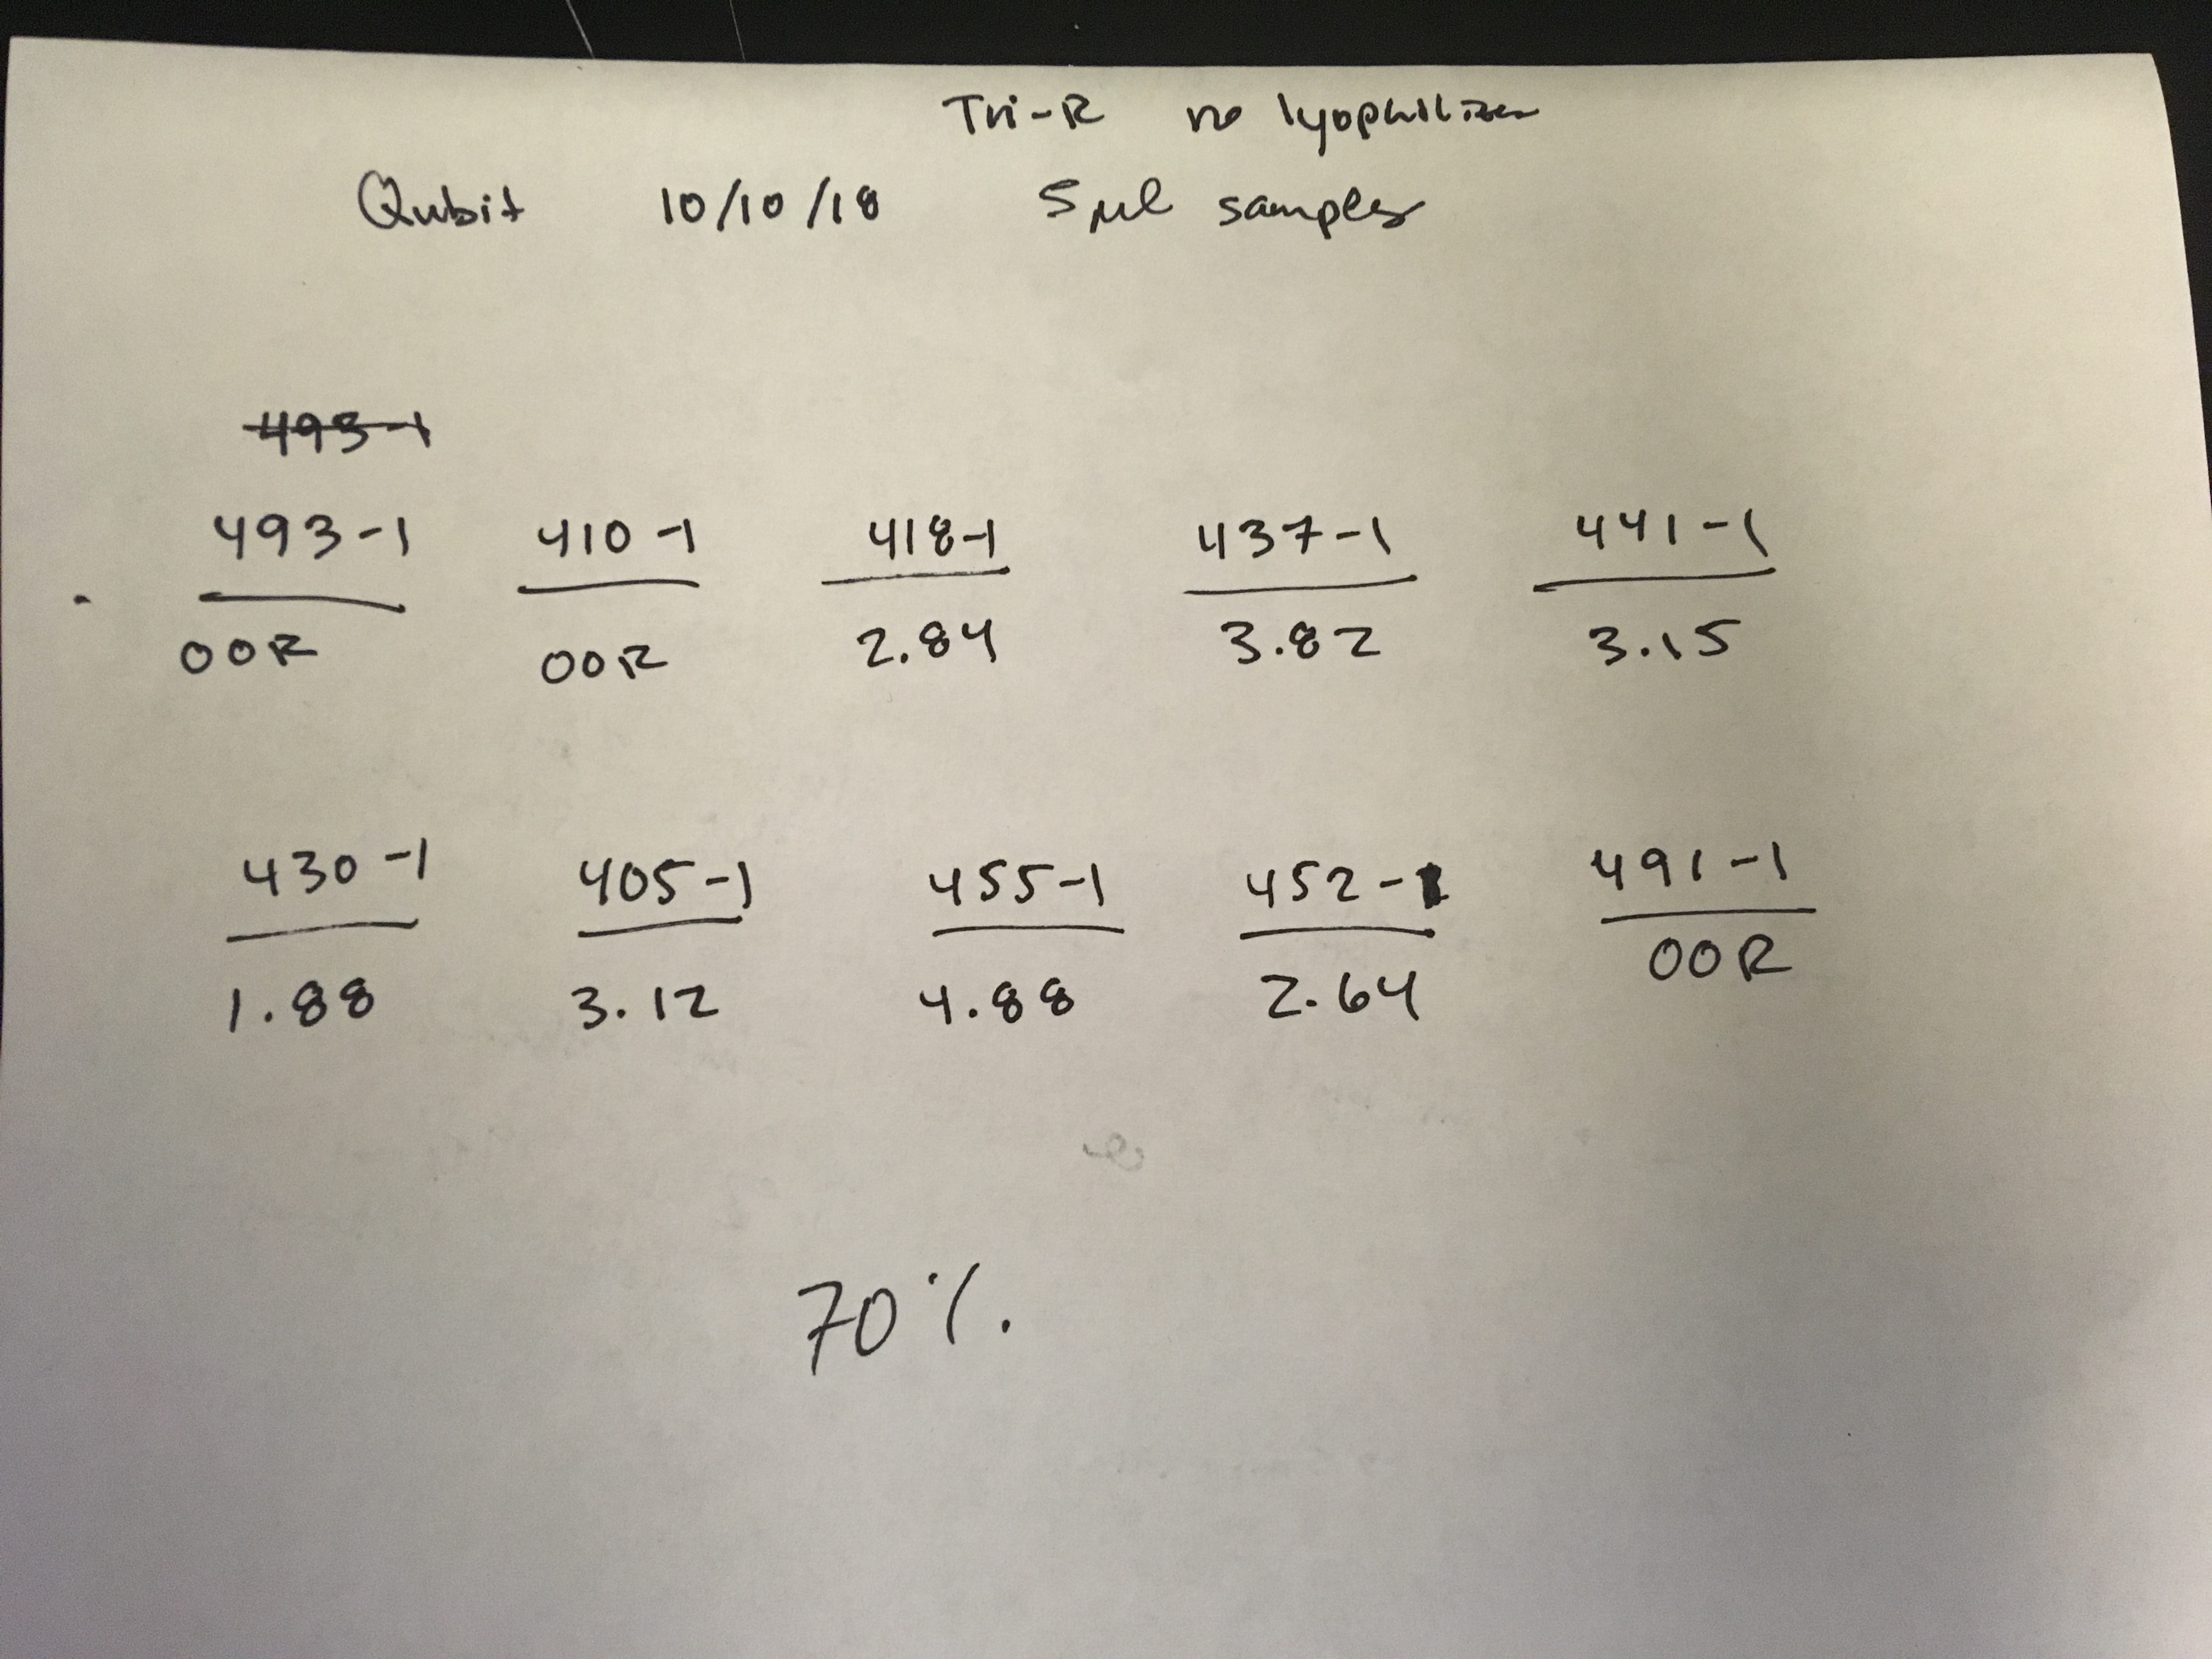 Tri-R no lyophilizer
Qubit 10/10/18 5µl samples
493-1
493-1 410-1 418-1 437-1 441-1
OOR OOR 2.84 3.82 3.15
430-1 405-1 455-1 452-1 491-1
1.88 3.12 4.88 2.64 OOR
70%